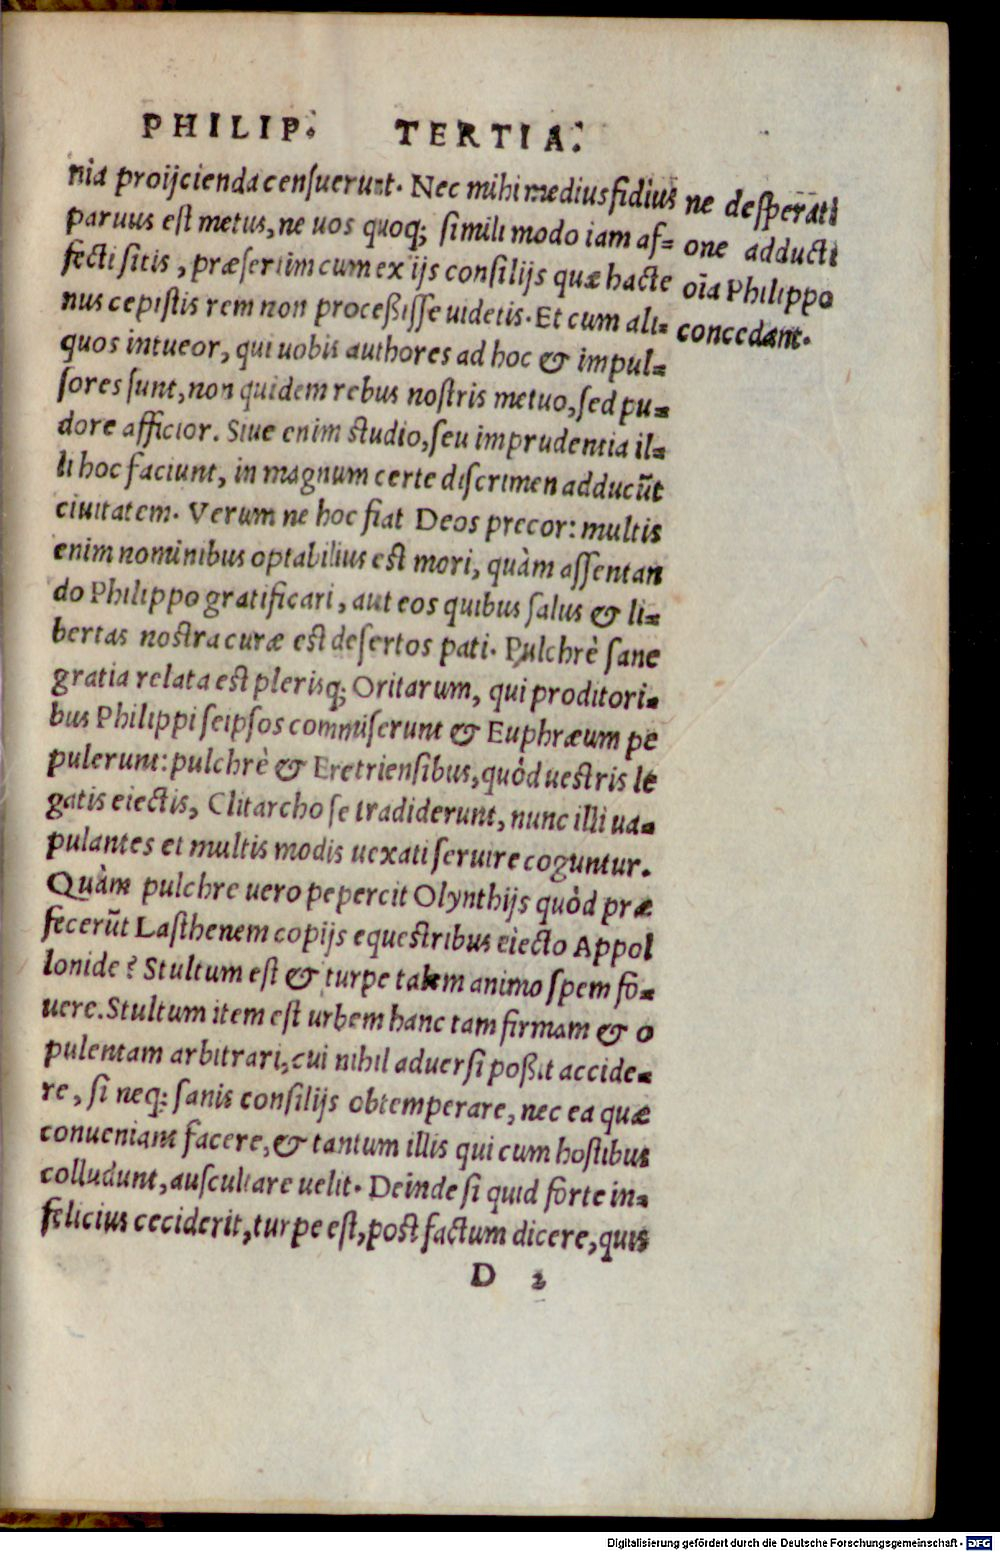 PHILIP. TERTIA.
nia proijcienda censuerunt. Nec mihi mediusfidius
paruus est metus, ne uos quoq; simili modo iam af=
fecti sitis, præsertim cum ex ijs consilijs quæ hacte
nus cepistis rem non proceßisse uidetis. Et cum ali=
quos intueor, qui uobis authores ad hoc & impul=
sores sunt, non quidem rebus nostris metuo, sed pu=
dore afficior. Siue enim studio, seu imprudentia il=
li hoc faciunt, in magnum certe discrimen adducūt
ciuitatem. Verum ne hoc fiat Deos precor: multis
enim nominibus optabilius est mori, quàm assentan
do Philippo gratificari, aut eos quibus salus & li=
bertas nostra curæ est desertos pati. Pulchrè sane
gratia relata est plerisq; Oritarum, qui proditori=
bus Philippi seipsos commiserunt & Euphræum pe
pulerunt: pulchrè & Eretriensibus, quòd uestris le
gatis eiectis, Clitarcho se tradiderunt, nunc illi ua=
pulantes et multis modis uexati seruire coguntur.
Quàm pulchre uero pepercit Olynthijs quòd præ
fecerūt Lasthenem copijs equestribus eiecto Appol
lonide? Stultum est & turpe talem animo spem fo=
uere. Stultum item est urbem hanc tam firmam & o
pulentam arbitrari, cui nihil aduersi poßit accide=
re, si neq; sanis consilijs obtemperare, nec ea quæ
conueniant facere, & tantum illis qui cum hostibus
colludunt, auscultare uelit. Deinde si quid forte in=
felicius ceciderit, turpe est, post factum dicere, quis
D 2
ne desperati
one adducti
oīa Philippo
concedant.
Digitalisierung gefördert durch die Deutsche Forschungsgemeinschaft - DFG